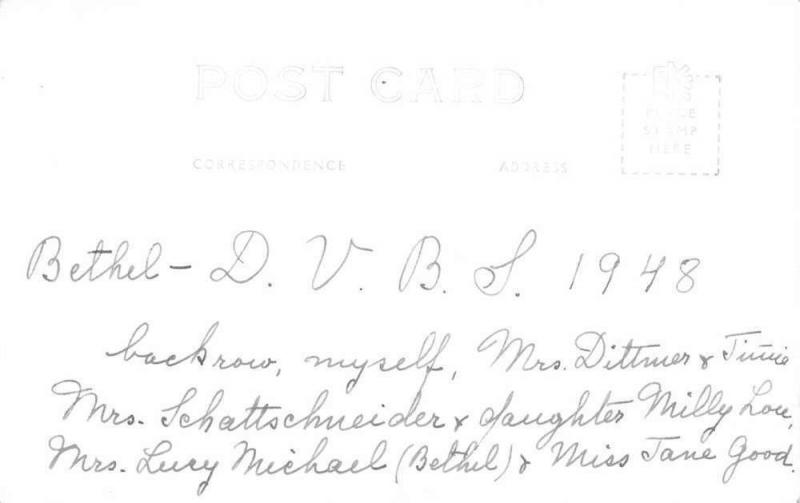 POST CARD
PLACE
STAMP
HERE
CORRESPONDENCE ADDRESS
Bethel - D. V. B. S. 1948
back row, myself, Mrs. Dittmer &
Mrs. Schattschneider & daughter Milly Lou,
Mrs. Lucy Michael (Bethel) & Miss Jane Good.